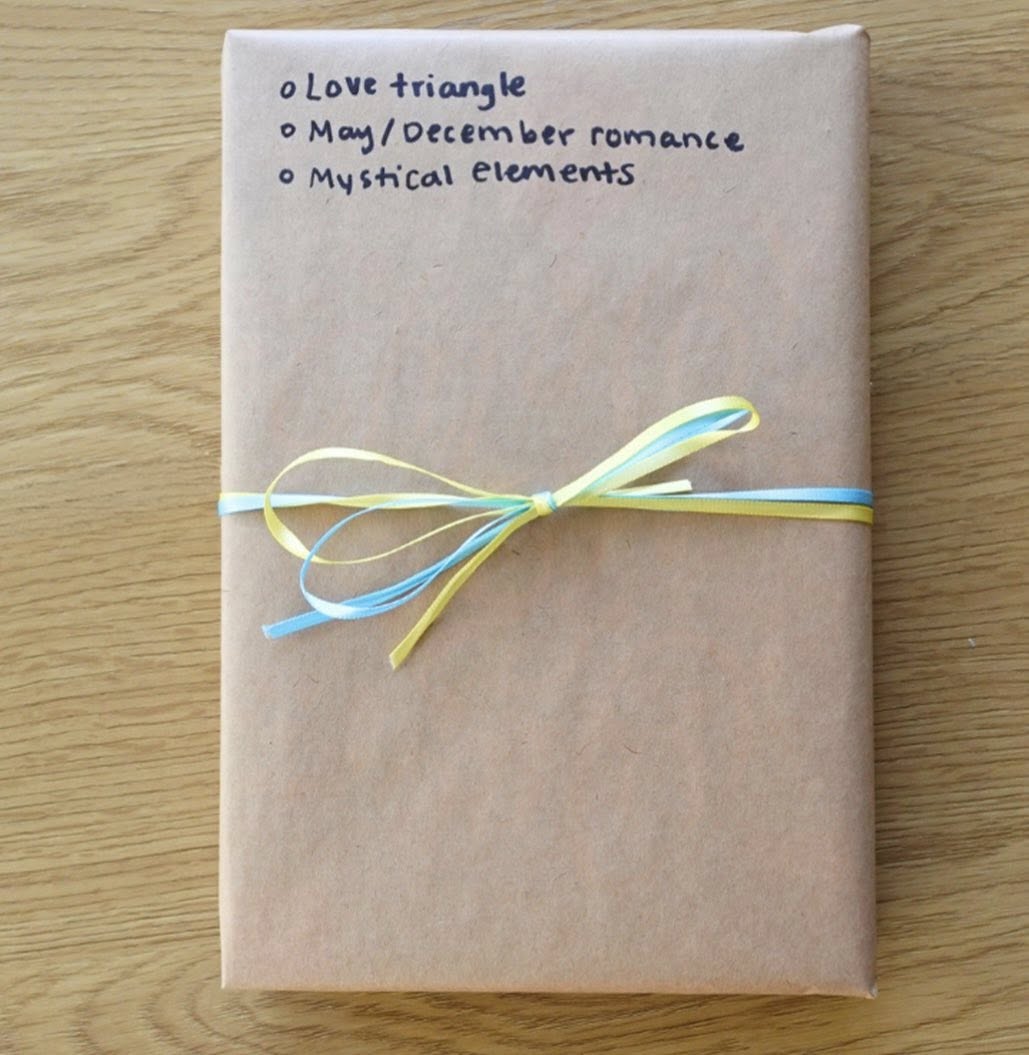 o Love triangle
o May/December romance
o Mystical elements